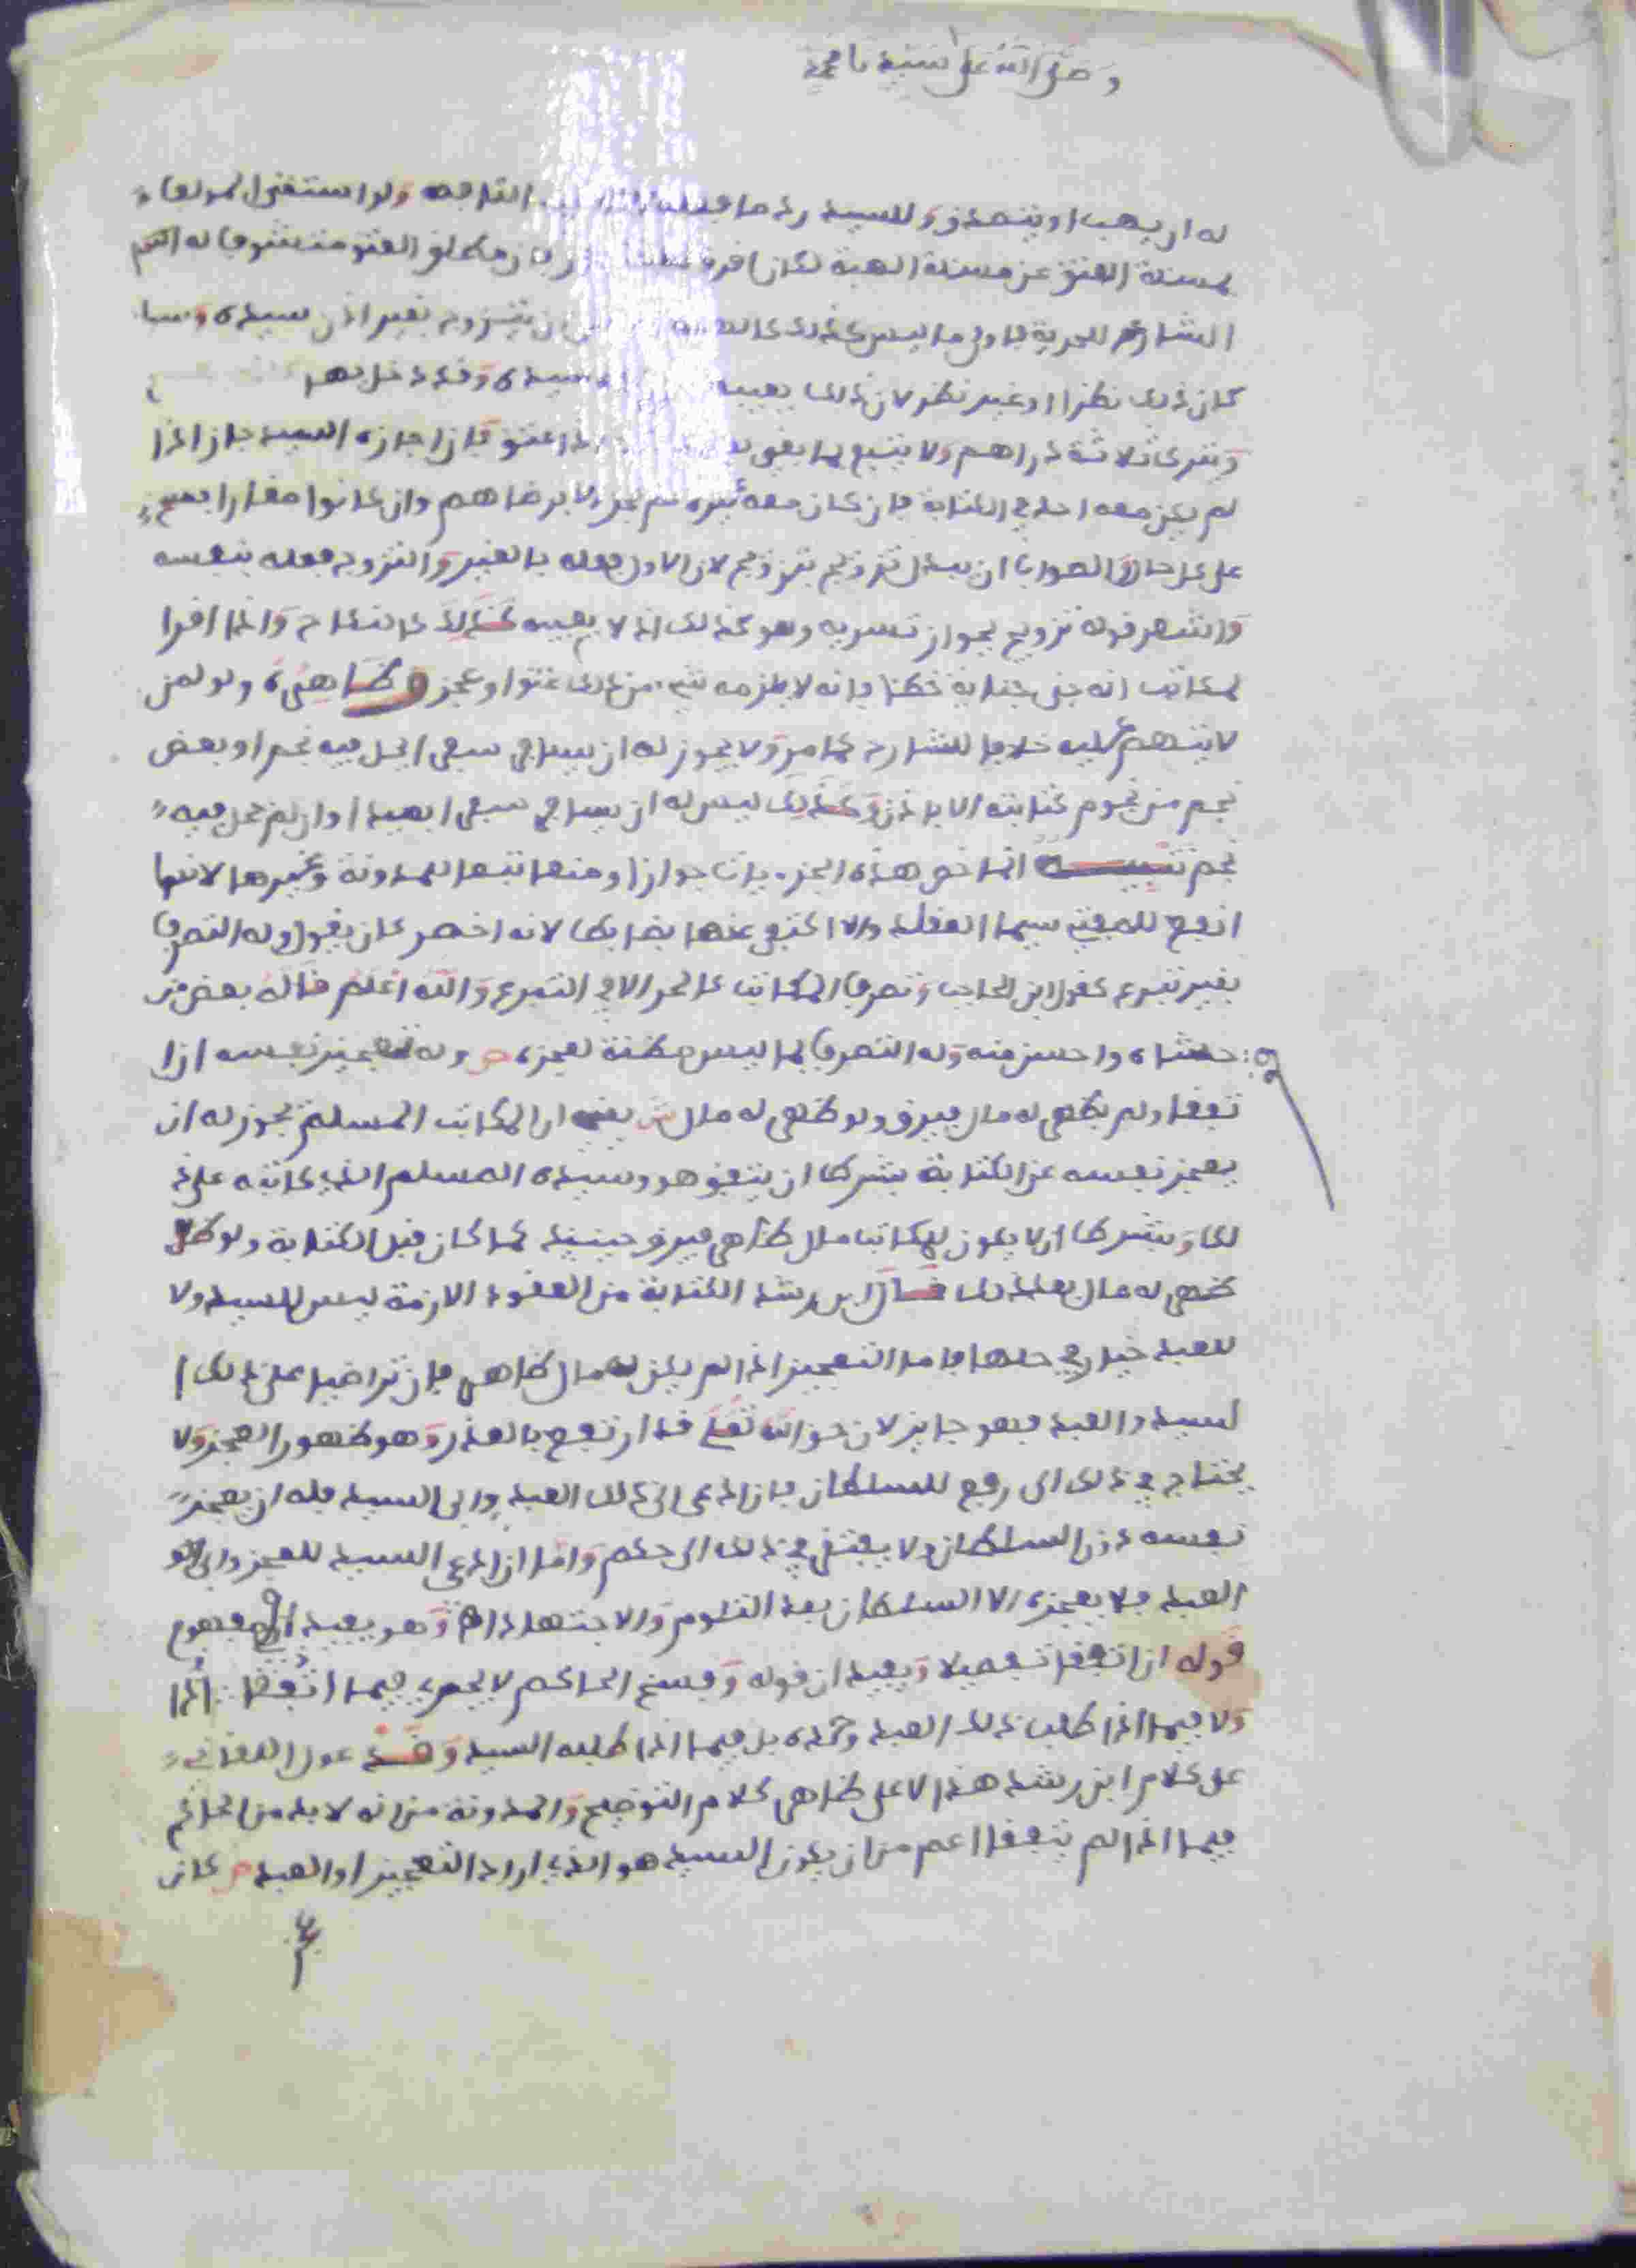 وصلى الله على سيدنا محمد
له ان يهب او يتصدق وللسيد رد ما التافه ولو استغنى المولف
بمسئلة العتق عن مسئلة الهبة لكان العتق متشوفا له
الشارع للحرية فاولى ما ليس كذلك كالهبة ان يتزوج بغير اذن سيده وسيا
كان ذلك نظرا او غير نظر لان ذلك يعيبه سيده وقد دخل بها
ويترك ثلاثة دراهم ولا يتبع بما بقي عتق فان اجازه السيد جاز اذا
لم يكن معه احد في الكتابة فان كان معه غيره لم يجز الا برضاهم وان كانوا صغارا يفسخ
على كل حال والصواب ان يبدل تزويج بتزوج لان الاول فعله بالغير والتزوج فعله بنفسه
واشعر قوله تزويج بجواز تسريه وهو كذلك اذ لا يعيبه كذلك كالنكاح واذا اقر
المكاتب انه جنى جناية خطا فانه لا يلزمه شيء من ذلك عتق او عجز وظاهره ولو لمن
لا يتهم عليه خلافا للشارح كما مر ولا يجوز له ان يسافر سفرا يحل فيه نجم او بعض
نجم من نجوم كتابته الا باذن وكذلك ليس له ان يسافر سفرا بعيدا وان لم يحل فيه
نجم تنبيه انما خص هذه الجزءيات جوازا ومنعا تبعا للمدونة وغيرها لانها
انفع للمفتي سيما المقلد والا اكتفى عنها بضابط لانه اخصر كان يقول وله التصرف
بغير تبرع كقول ابن الحاجب وتصرف المكاتب كالحر الا في التبرع والله اعلم قاله بعض من
حشاه واحسن منه وله التصرف بما ليس مظنة لعجزه ص وله تعجيز نفسه ان ا
تفقا ولم يظهر له مال فيرق ولو ظهر له مال ش يعني ان المكاتب المسلم يجوز له ان
يعجز نفسه عن الكتابة بشرط ان يتفق هو وسيده المسلم الذي كاتبه على ذ
لك وبشرط ان لا يكون للمكاتب مال ظاهر فيرق حينئذ كما كان قبل الكتابة ولو
ظهر له مال بعد ذلك قال ابن رشد الكتابة من العقود الازمة ليس للسيد ولا
للعبد خيار في حلها فاما التعجيز اذا لم يكن له مال ظاهر فان تراضيا على ذلك ا
لسيد والعبد فهو جايز لان حق الله تعلى قد ارتفع بالعذر وهو ظهور العجز ولا
يحتاج في ذلك الى رفع للسلطان فان دعى الى ذلك العبد وابى السيد فله ان يعجز
نفسه دون السلطان ولا يفتقر في ذلك الى حكم واما ان دعى السيد للتعجيز وابى
العبد فلا يعجزه الا السلطان بعد التلوم والاجتهاد وهو يفيد ان في مفهوم
قوله ان اتفقا تفصيلا ويفيد ان قوله وفسخ الحاكم لا يجري فيما اتفقا
ولا فيما اذا طلب ذلك العبد وحده بل فيما اذا طلبه السيد وقد عول اللقاني
على كلام ابن رشد هذا لا على ظاهر كلام التوضيح والمدونة من انه لا بد من الحاكم
فيما اذا لم يتفقا اعم من ان يكون السيد هو الذي اراد التعجيز او العبد ص كان